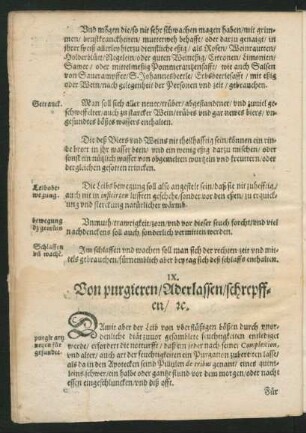 Vnd mögen die/so nit sehr schwachen magen haben/mit grim-
men/ brustkranckheiten/ muterweh behafft/ oder darzu geneigt/ in
ihrer speiß allerley hierzu dienstliche essig/ als Rosen/ Weinrauten/
Holderblüt/ Negelein/ oder guten Weinessig/ Citronen/ Limonien/
Sawer/ oder mittelmeßig Pomerantzensafft/ wie auch Salsen
von Saurampffer/ S. Johannestreule/ Erbsbeersafft/ mit essig
oder Wein/ nach gelegenheit der Personen vnd zeit/ gebrauchen.
Getranck.
Man soll sich aller newer/ trüber/ abgestandener/ vnd zuuiel ge-
schwefelter/ auch zu starcker Wein/ trübes vnd gar newes biers/ vn-
gesundes bösen wassers enthalten.
Die deß Biers vnd Weins nit theilhafftig sein/ können ein rin-
de brot in ihr wasser thun/ vnd ein wenig essig darzu mischen/ oder
sonst ein nützlich wasser von abgemelten wurtzeln vnd kreutern/ oder
der gleichen gesotten trincken.
Leibsbe-
wegung.
Die Leibs bewegung soll also angestelt sein/ daß sie nit zu hefftig/
auch nit in inficirtem lufften geschehe/ sonder vor dem essen/ zu erquick-
ung vnd sterckung natürlicher wärme.
bewegung
deß gemüts
Vnmuth/ traurigkeit/ zorn/ vnd vor dieser seuch forcht/ vnd viel
nachdenckens soll auch sonderlich vermitten werden.
Schlaffen
vñ wachẽ.
Im schlaffen vnd wachen soll man sich der rechten zeit vnd mit-
tels gebrauchen/ fürnemblich aber bey tag sich deß schlaffs enthalten.
IX.
Von purgieren/ Aderlassen/ schrepf-
fen/ ꝛc.
purgir artz
neyen für
gesunde.
DAmit aber der Leib von vberflüssigen bößen durch vnor-
denliche diät zuuor gesamblete feuchtigkeiten entlediget
werde/ erfordert die notturfft/ daß ein jeder nach seiner Complexion,
vnd alter/ auch art der feuchtigkeiten ein Purgation zubereiten lasse/
als da in den Apotecken seind Pilulen de tribus genant/ eines quint-
leins schwer/ ein halbe oder gantze stund vor dem morgen/ oder nacht
essen eingeschluncken/ vnd deß offt.
Für